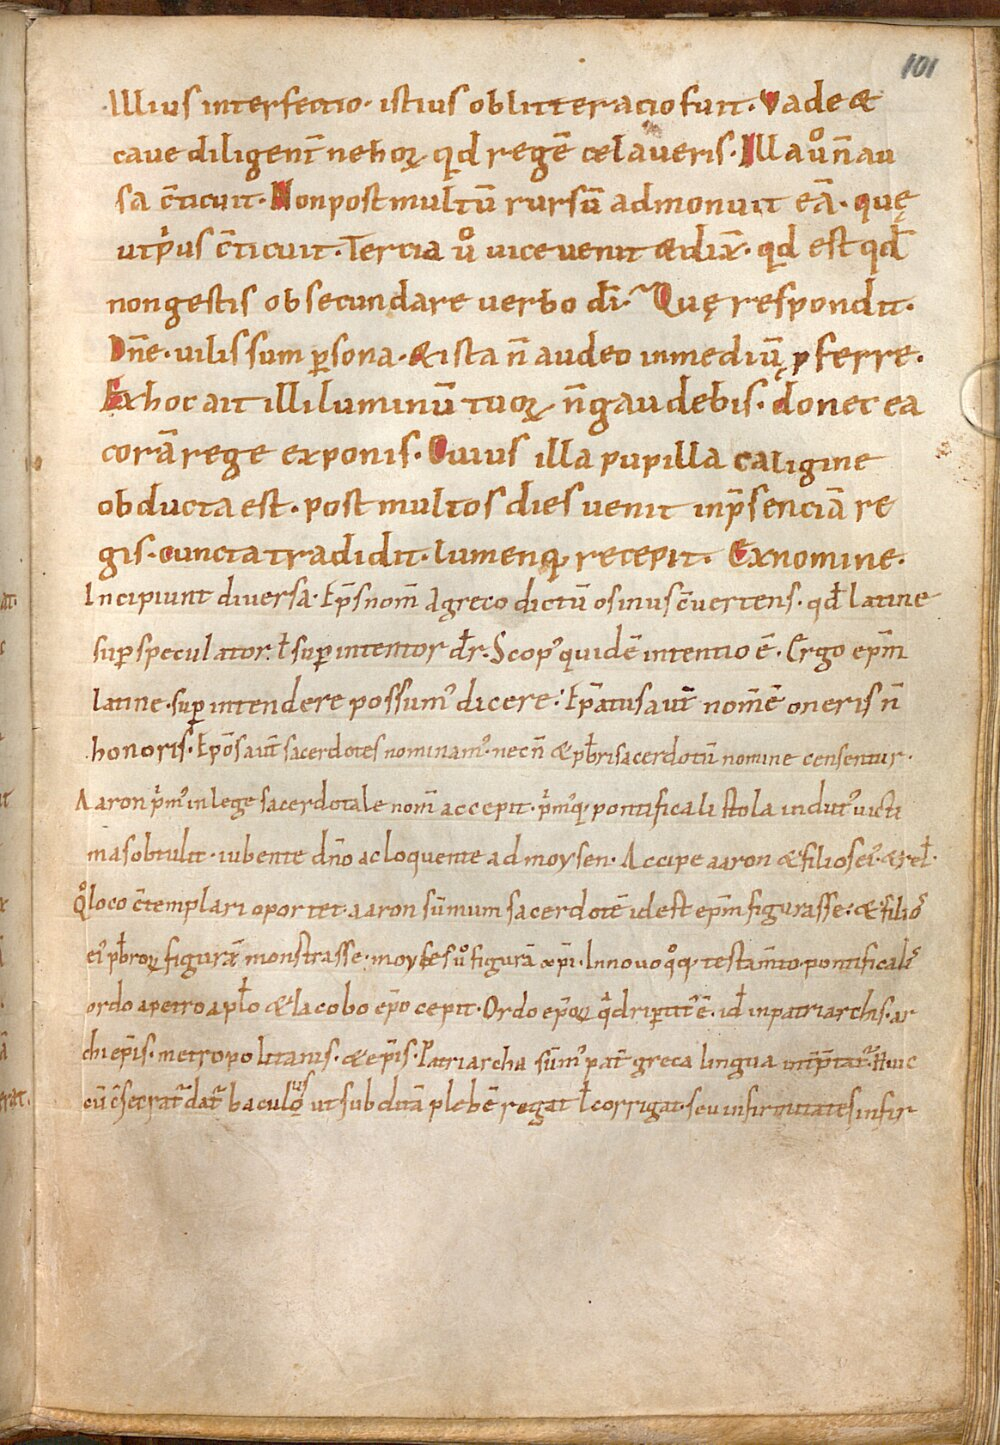 101
Illius interfectio· istius oblitteracio fuit· Vade &
caue diligent̄ ne horꝝ qd regē celaueris· Illa ů n̄ au
sa c̄ticuit· Non post multū rursū admonuit eā· quę
ut pͥus c̄ticuit· Tercia ů uice uenit & dix̄· qd est qđ
non gestis obsecundare uerbo dī· Quę respondit·
Dn̄e· uilis sum ꝑsona· & ista n̄ audeo in mediū ꝓferre·
Ex hoc ait illi luminū tuoꝝ n̄ gaudebis· donec ea
corā rege exponis· Cuius illa pupilla caligine
obducta est· post multos dies uenit in p̄senciā re
gis· cuncta tradidit· lumenq; recepit· Ex nomine·
Incipiunt diuersa· Ep̄s nom̄ A greco dictū osinus c̄uertens· qđ latine
suꝑspeculator· ł suꝑintentor dr̄· Scopꝰ quidē intentio ē· Ergo ep̄m
latine· suꝑ intendere possumꝰ dicere· Ep̄atus aut̄ nom̄ ē oneris n̄
honoris· Ep̄os aut̄ sacerdotes nominamꝰ· nec n̄ & pƀri sacerdotū nomine censentur·
Aaron p̄mꝰ in lege sacerdotale nom̄ accepit· p̄mꝰq; pontificali stola indutꝰ uicti
mas obtulit· iubente dn̄o ac loquente ad moysen· Accipe aaron & filios eiꝰ· & reł·
Qͦ loco c̄templari oportet· aaron sūmum sacerdotē id est ep̄m figurasse· & filioꝰ
eiꝰ pƀroꝝ figurā monstrasse· moyses ů figurā xp̄i· In nouo qͦq; testam̄to pontificalꝰ
ordo a petro apło & Iacobo ep̄o cepit· Ordo ep̄oꝝ qͣdriꝑtitꝰ ē· iđ in patriarchis· ar
chiep̄is· metropolitanis· & ep̄is· Patriarcha sūmꝰ pat̄ greca lingua int̄p̄tat᷑· Huic
cū c̄secrat᷑ dat᷑ baculus ut subditā plebē regat ł corrigat· seu infirmitates infir